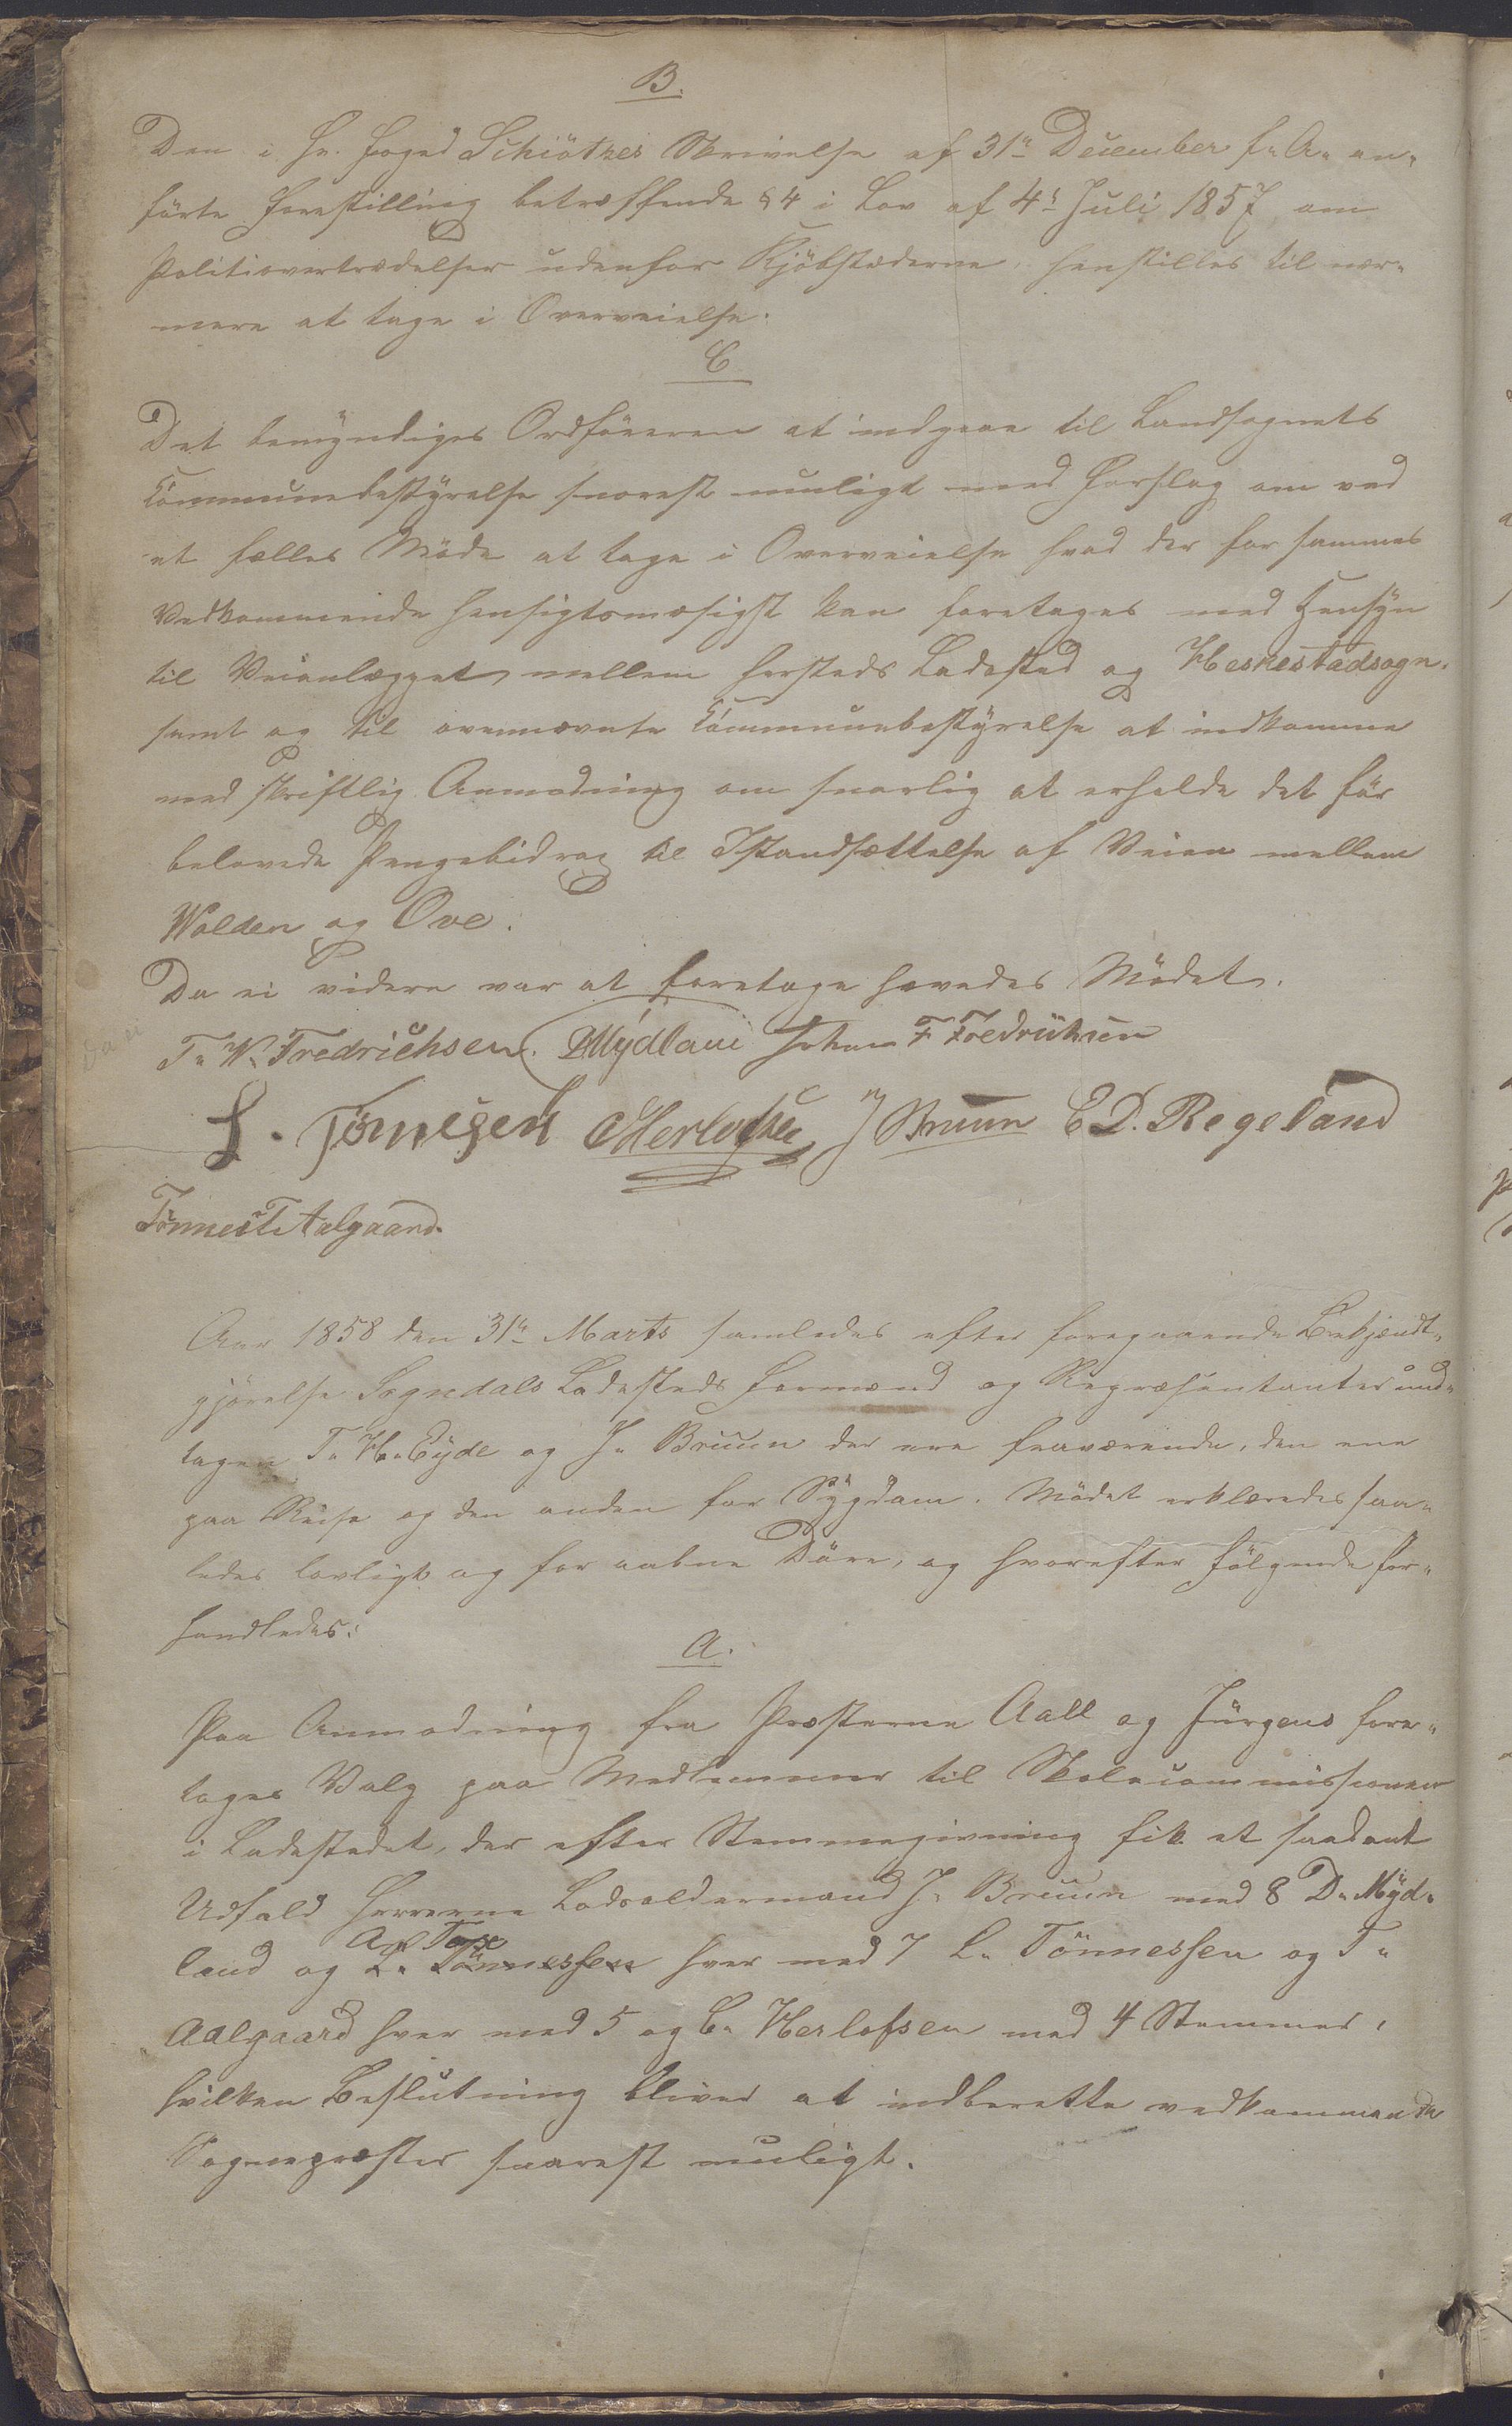 B.
Den i Hr. Foged Schiötzes Skrivelse af 31te December f. A. an-
førte Forestilling betræffende § 4 i Lov af 4de Juli 1857 om
Politiovertrædelser udenfor Kjöbstæderne, henstilles til nær-
mere at tage i Overveielse.
C
Det bemyndiges Ordföreren at indgaae til Landsognets
Communebestyrelse snarest muligt med Forslag om ved
et fælles Möde at tage i Overveielse hvad der for sammes
Vedkommende hensigtsmæsigst kan foretages med Hensyn
til Veianlægget mellem hersteds Ladested og Heskestadsogn.
samt og til ovennævnte Communebestyrelse at indkomme
med skriftlig Anmodning om snarlig at erholde det før
belovede Pengebidrag til Istandsættelse af Veien mellem
Wolden og Ove.
Da ei videre var at foretage hævedes Mödet.
T. W. Fredrichsen. DMydland Johan F Fredrichsen
L. Tönnesen CHerlofsen J Bruun E D. Regeland
Tönnes T. Aalgaard.
Aar 1858 den 31te Marts samledes efter foregaaende Bekjendt-
gjörelse Sogndals Ladesteds Formænd og Repræsentanter und-
tagen T. H. Eyde og J. Bruun der ere fraværende, den ene
paa Reise og den anden for Sygdom. Mödet erklæredes saa-
ledes lovligt og for aabne Döre, og hvorefter fölgende for-
handledes:
A.
Paa Anmodning fra Præsterne Aall og Jürgens fore-
toges Valg paa Medlemmer til Skolecommissionen
i Ladestedet, der efter Stemmegivning fik et saadant
Udfald Herrerne Lodsoldermand J. Bruun med 8 D. Myd-
land og L. Tönnessen hver med 7 L. Tönnessen og T.
Aalgaard hver med 5 og C. Herlofsen med 4 Stemmer,
hvilken Beslutning bliver at indberette vedkommende
Sognepræster snarest muligt.